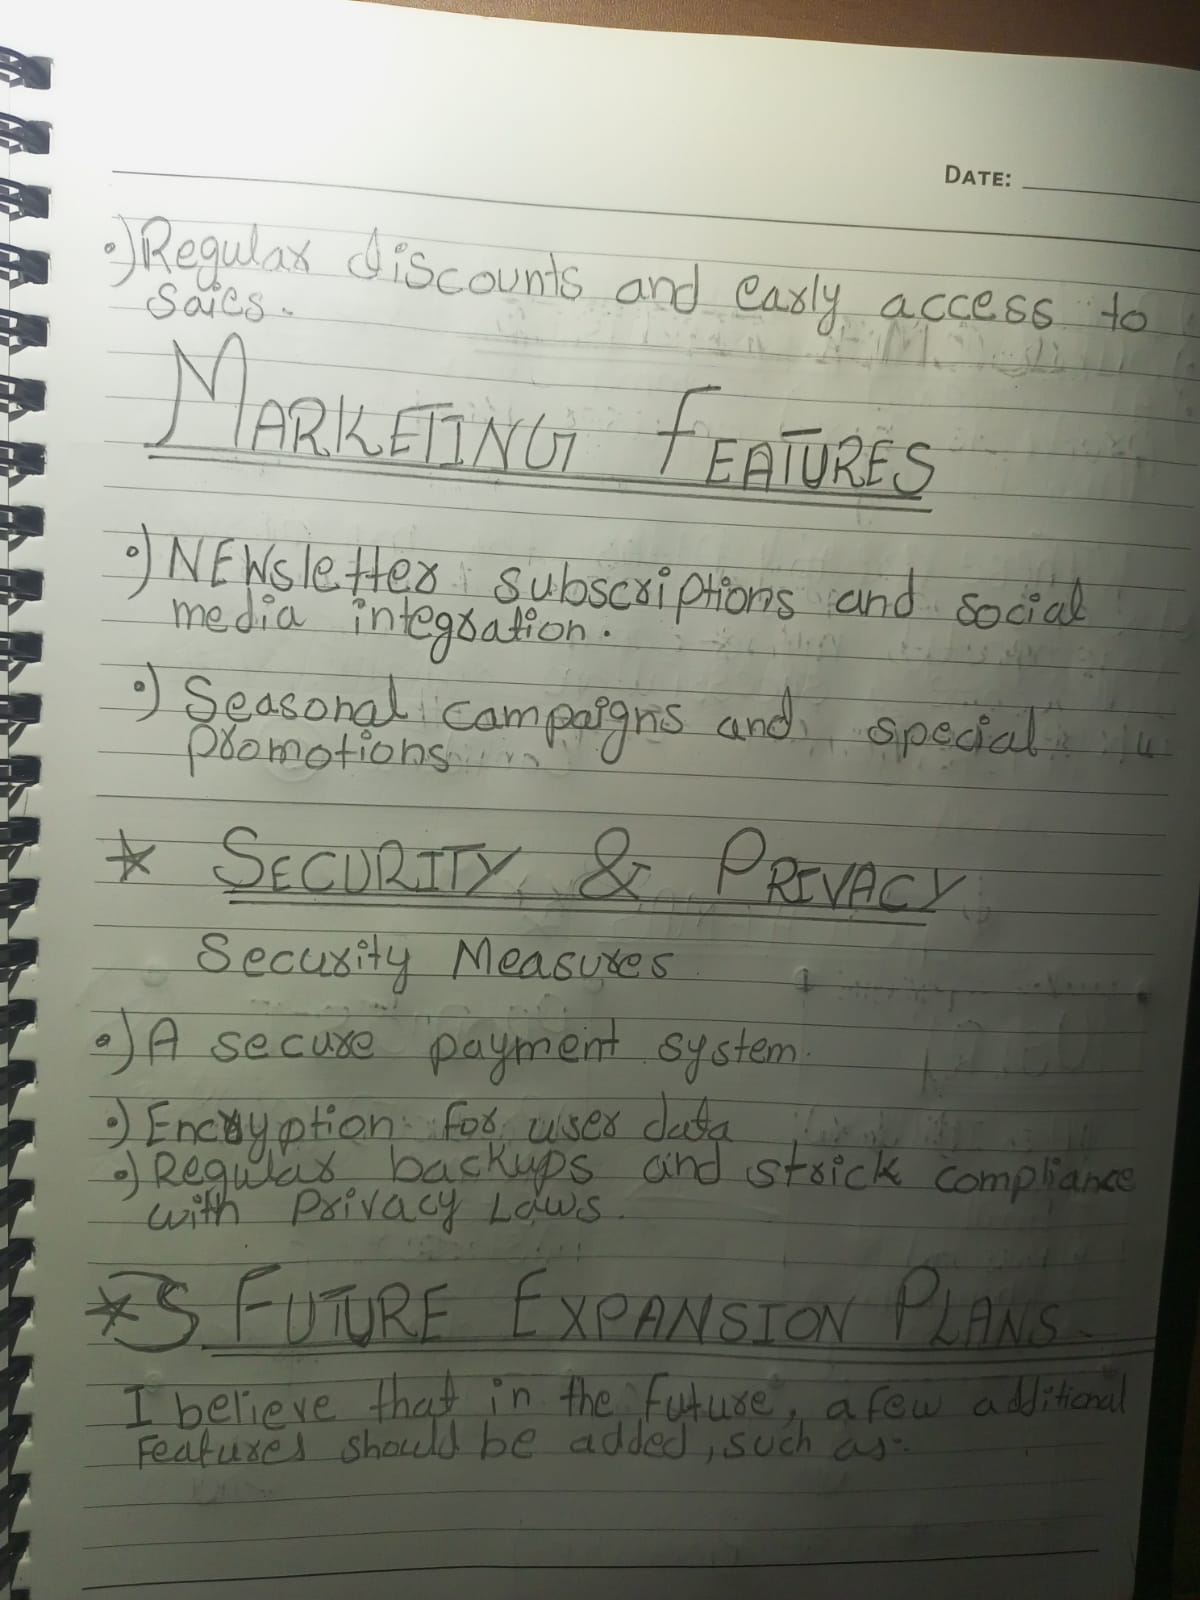 DATE:
•) Regular discounts and early access to
sales.
MARKETING FEATURES
•) NEWsletter subscriptions and social
media integration.
•) Seasonal campaigns and special
promotions
* SECURITY & PRIVACY
Security Measures
•) A secure payment system.
•) Encryption for user data
•) Regular backups and strick compliance
with Privacy Laws.
* FUTURE EXPANSION PLANS.
I believe that in the future, a few additional
features should be added, such as:-